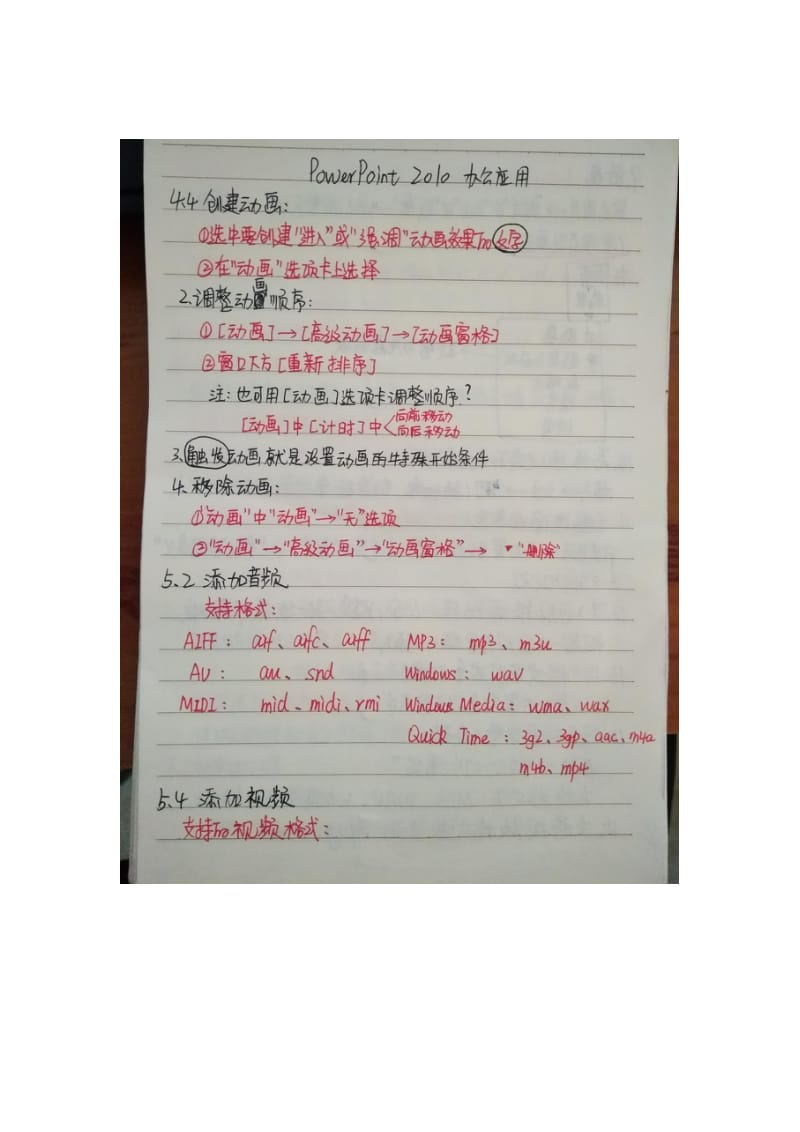 PowerPoint 2010 办公应用
4.4 创建动画:
①选中要创建"进入"或"强调"动画效果的文字
②在"动画"选项卡上选择
2.调整动画顺序:
①[动画]→[高级动画]→[动画窗格]
②窗口下方[重新排序]
注:也可用[动画]选项卡调整顺序?
[动画]中[计时]中<向前移动
向后移动
3.触发动画就是设置动画的特殊开始条件
4.移除动画:
①"动画"中"动画"→"无"选项
②"动画"→"高级动画"→"动画窗格"→ ▾"删除"
5.2 添加音频
支持格式:
AIFF: aif、aifc、aiff MP3: mp3、m3u
AU: au、snd Windows: wav
MIDI: mid、midi、rmi Windows Media: wma、wax
Quick Time: 3g2、3gp、aac、m4a
m4b、mp4
5.4 添加视频
支持的视频格式: